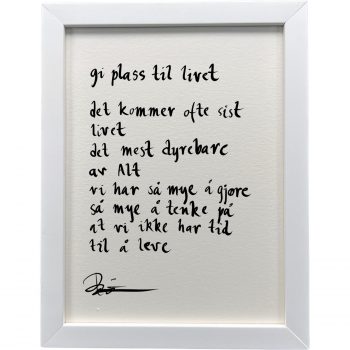 gi plass til livet
det kommer ofte sist
livet
det mest dyrebare
av Alt
vi har så mye å gjøre
så mye å tenke på
at vi ikke har tid
til å leve